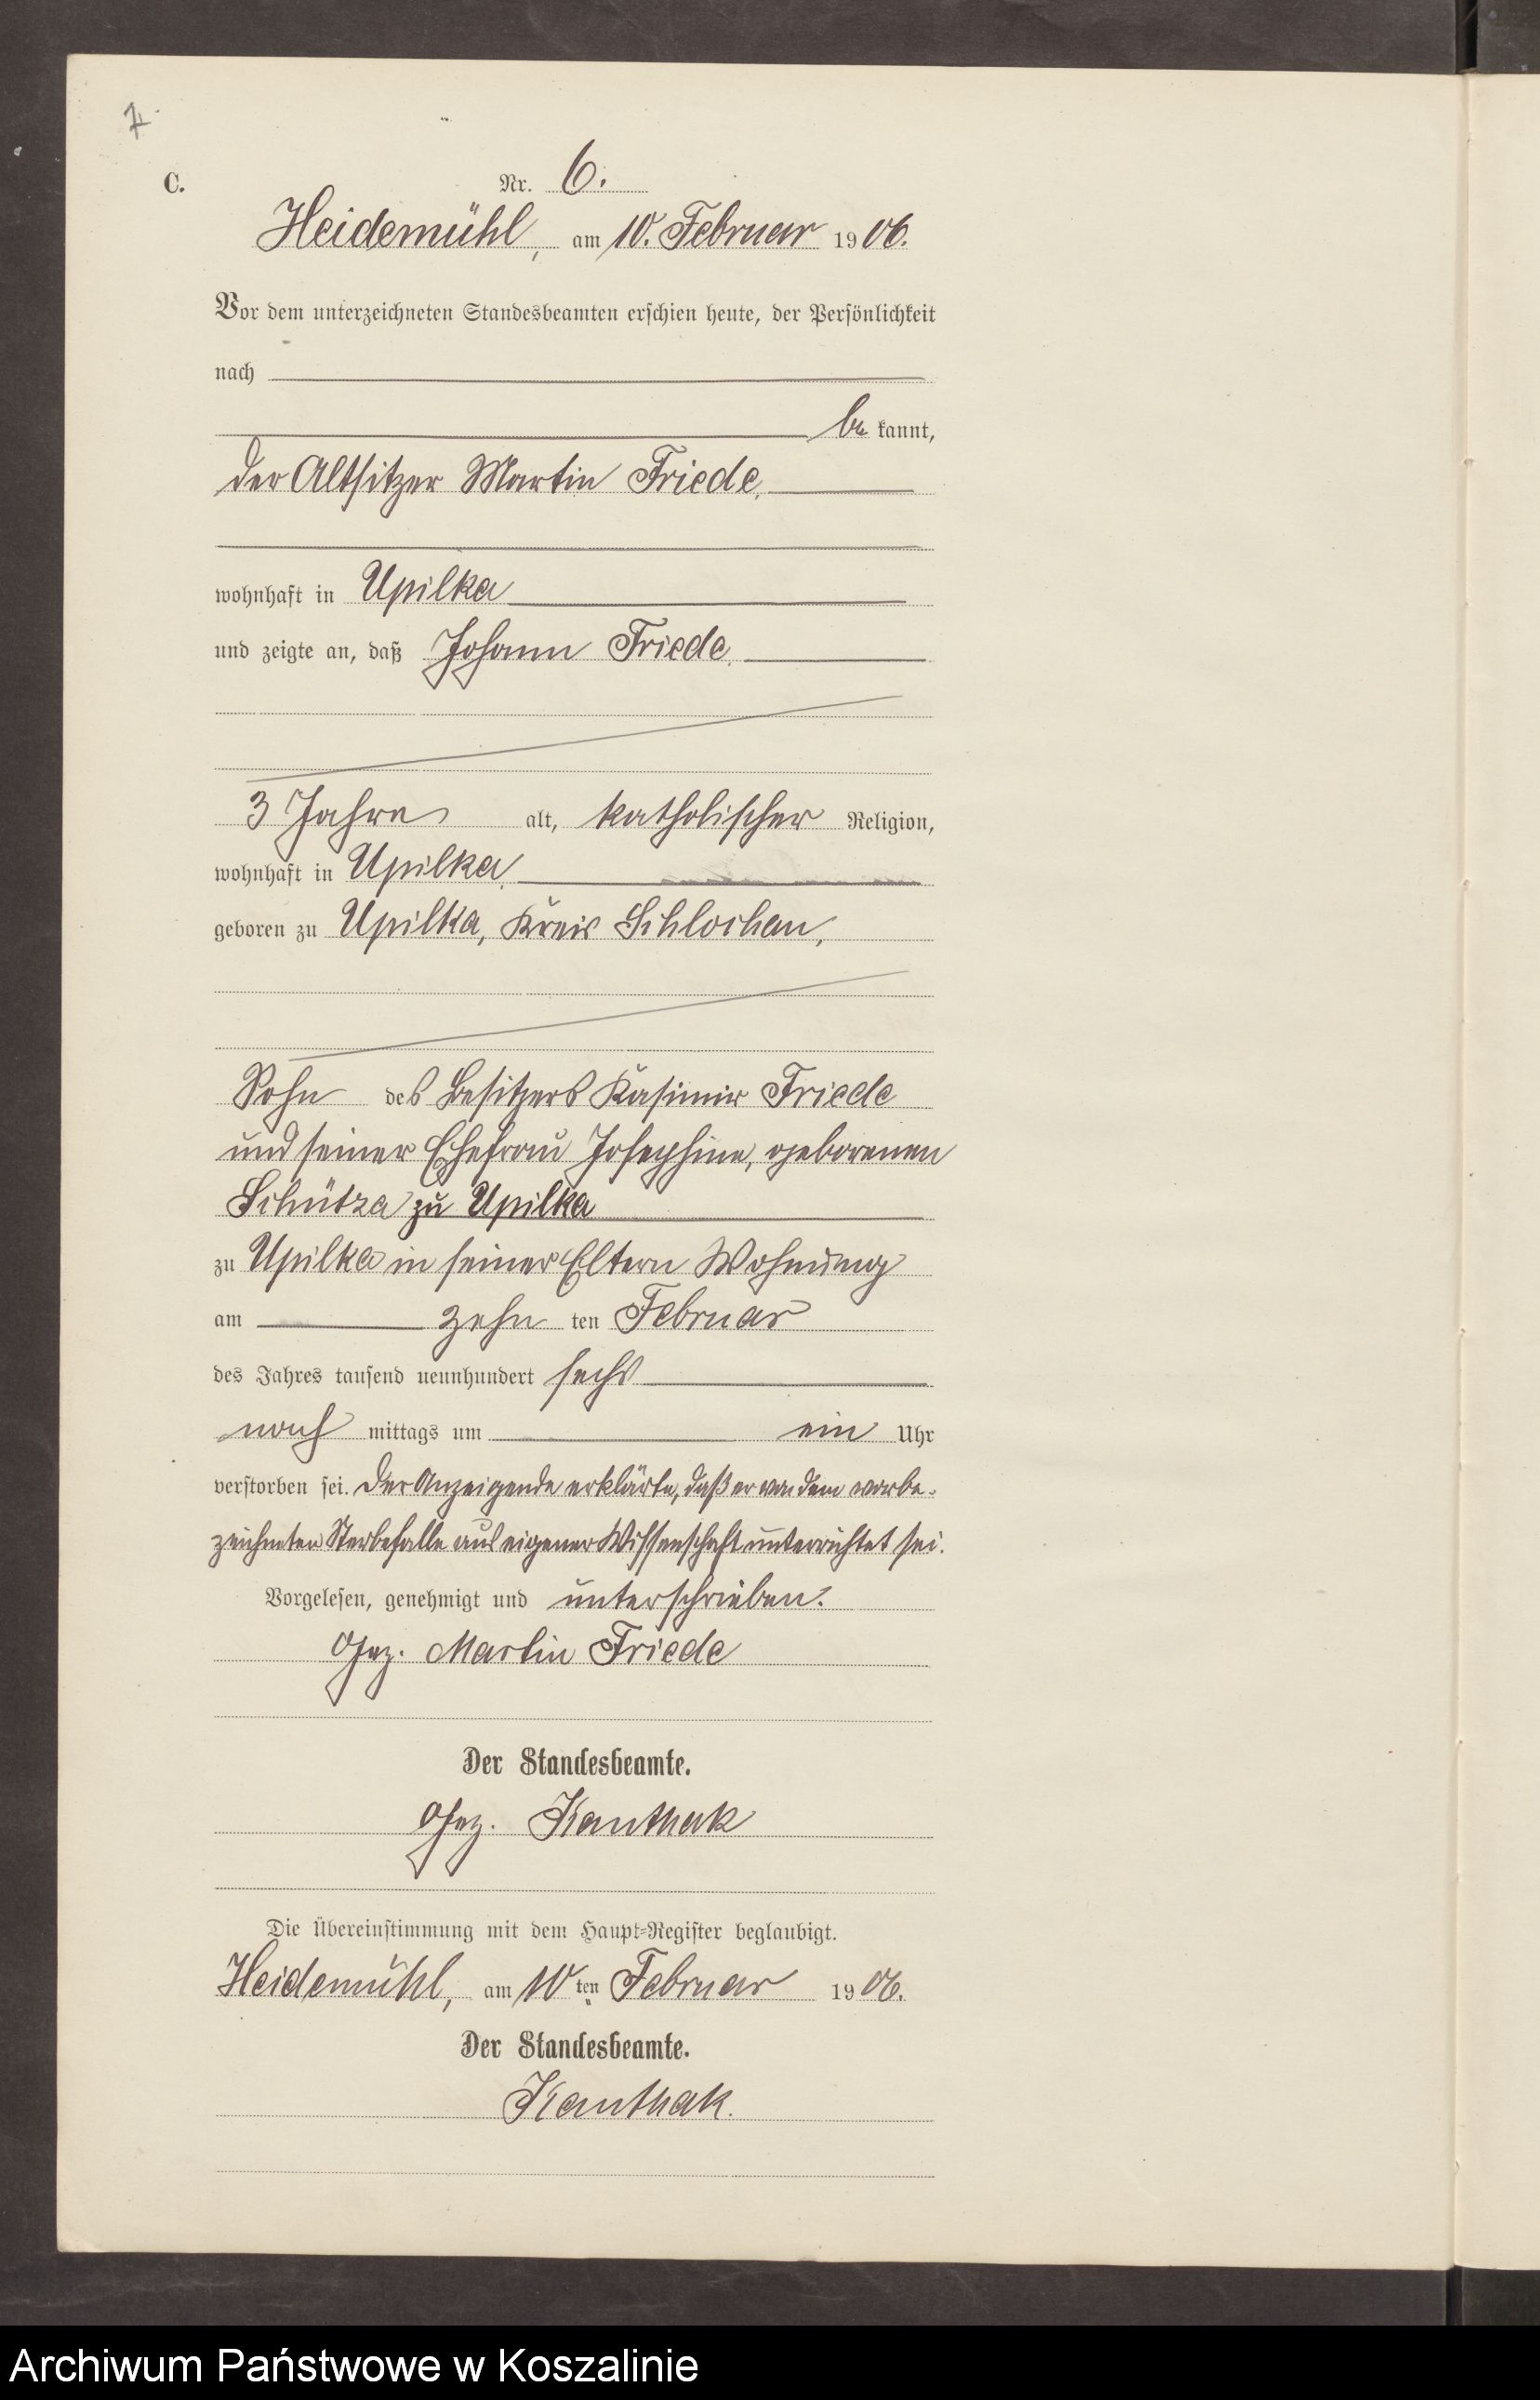 7.
C.
Nr. 6.
Heidemühl, am 10. Februar 1906.
Vor dem unterzeichneten Standesbeamten erschien heute, der Persönlichkeit
nach
be kannt,
der Altsitzer Martin Friede,
wohnhaft in Upilka
und zeigte an, daß Johann Friede,
3 Jahre alt, katholischer Religion,
wohnhaft in Upilka,
geboren zu Upilka, Kreis Schlochau,
Sohn des Besitzers Kasimir Friede
und seiner Ehefrau Josephine, geborenen
Schütza zu Upilka
zu Upilka in seiner Eltern Wohnung
am zehn ten Februar
des Jahres tausend neunhundert sechs
nach mittags um ein Uhr
verstorben sei. Der Anzeigende erklärte, daß er von dem vorbe-
zeichneten Sterbefalle aus eigener Wissenschaft unterrichtet sei.
Vorgelesen, genehmigt und unterschrieben.
Gez. Martin Friede
Der Standesbeamte.
Gez. Kanthak
Die Übereinstimmung mit dem Haupt-Register beglaubigt.
Heidemühl, am 10ten Februar 1906.
Der Standesbeamte.
Kanthak.
Archiwum Państwowe w Koszalinie